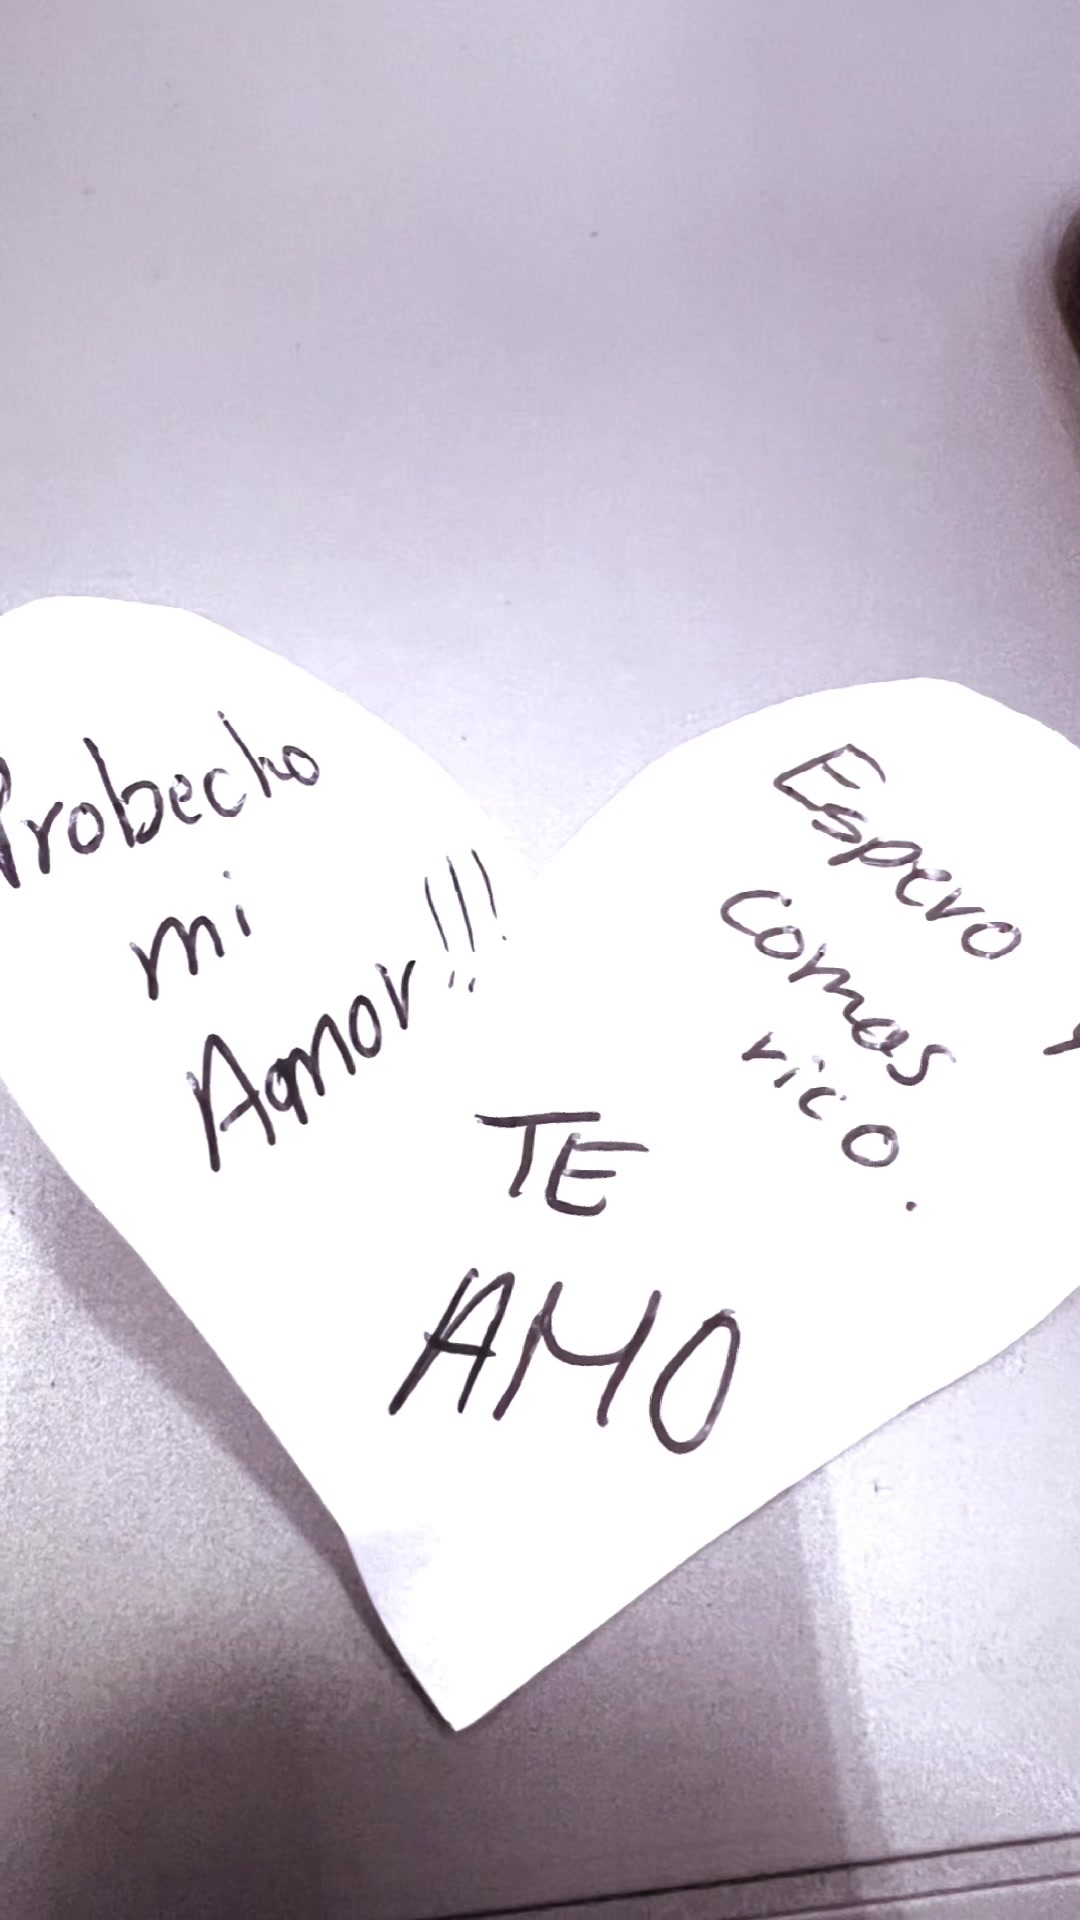 Probecho
mi
Amor!!!
Espero
comas
rico.
TE
AMO